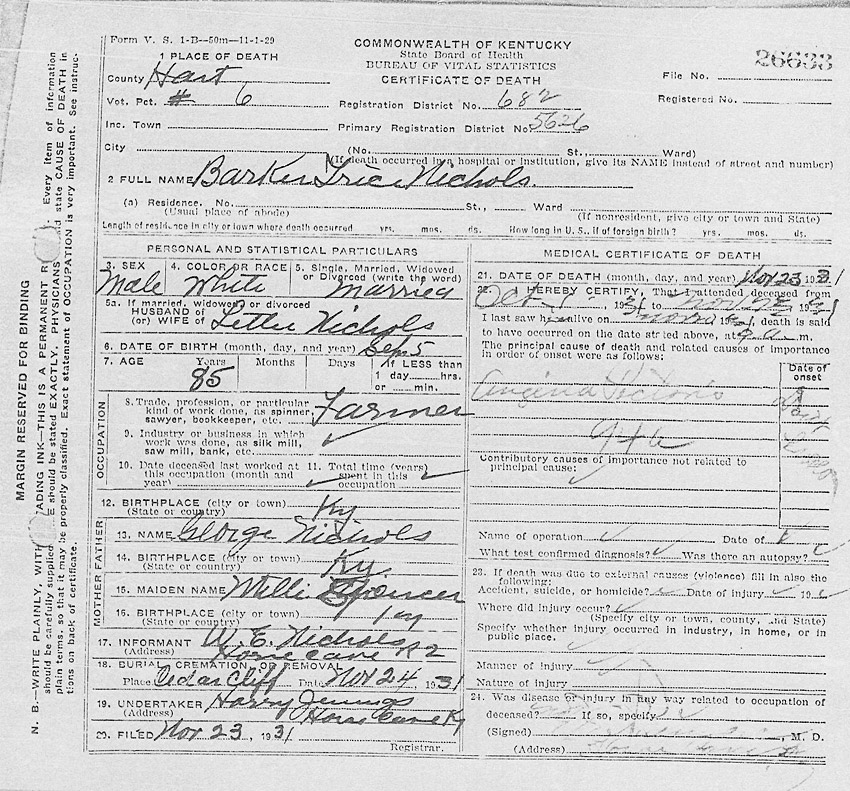 Form V. S. 1-B--50m—11-1-29
COMMONWEALTH OF KENTUCKY
State Board of Health
BUREAU OF VITAL STATISTICS
CERTIFICATE OF DEATH
26633
File No.
Registered No.
1 PLACE OF DEATH
County Hart
Vot. Pct. # 6
Registration District No. 682
Inc. Town
Primary Registration District No. 5626
City (No. St., Ward)
(If death occurred in a hospital or institution, give its NAME instead of street and number)
2 FULL NAME Barker Nichols.
(a) Residence. No. St., Ward
(Usual place of abode) (If nonresident, give city or town and State)
Length of residence in city or town where death occurred yrs. mos. ds. How long in U. S., if of foreign birth? yrs. mos. ds.
PERSONAL AND STATISTICAL PARTICULARS
3. SEX 4. COLOR OR RACE 5. Single, Married, Widowed
or Divorced (write the word)
Male White Married
5a. If married, widowed or divorced
HUSBAND of
(or) WIFE of Nichols
6. DATE OF BIRTH (month, day, and year) Sep 5
7. AGE Years Months Days If LESS than
1 day hrs.
or min.
85
OCCUPATION
8. Trade, profession, or particular
kind of work done, as spinner,
sawyer, bookkeeper, etc. Farmer
9. Industry or business in which
work was done, as silk mill,
saw mill, bank, etc.
10. Date deceased last worked at this occupation (month and year)
11. Total time (years) spent in this occupation
12. BIRTHPLACE (city or town)
(State or country) Ky
FATHER
13. NAME George Nichols
14. BIRTHPLACE (city or town)
(State or country) Ky
MOTHER
15. MAIDEN NAME Milli Spencer
16. BIRTHPLACE (city or town)
(State or country) Ky
17. INFORMANT W. E. Nichols
(Address) Horse Cave R2
18. BURIAL, CREMATION, OR REMOVAL
Place Cedar Cliff Date Nov 24, 1931
19. UNDERTAKER Harry Jennings
(Address) Horse Cave Ky
20. FILED Nov 23, 1931
Registrar.
MEDICAL CERTIFICATE OF DEATH
21. DATE OF DEATH (month, day, and year) Nov 23 1931
22. I HEREBY CERTIFY, That I attended deceased from
Oct 1931 to 1931
I last saw h alive on 193, death is said
to have occurred on the date stated above, at m.
The principal cause of death and related causes of importance
in order of onset were as follows:
Date of
onset
Angina Pectoris
94b
Contributory causes of importance not related to
principal cause:
Name of operation Date of
What test confirmed diagnosis? Was there an autopsy?
23. If death was due to external causes (violence) fill in also the
following:
Accident, suicide, or homicide? Date of injury 19
Where did injury occur?
(Specify city or town, county, and State)
Specify whether injury occurred in industry, in home, or in
public place.
Manner of injury
Nature of injury
24. Was disease or injury in any way related to occupation of
deceased? If so, specify
(Signed) , M. D.
(Address)
MARGIN RESERVED FOR BINDING
N. B.—WRITE PLAINLY, WITH FADING INK—THIS IS A PERMANENT R Every item of information
should be carefully supplied. E should be stated EXACTLY. PHYSICIANS state CAUSE OF DEATH in
plain terms, so that it may be properly classified. Exact statement of OCCUPATION is very important. See instruc-
tions on back of certificate.